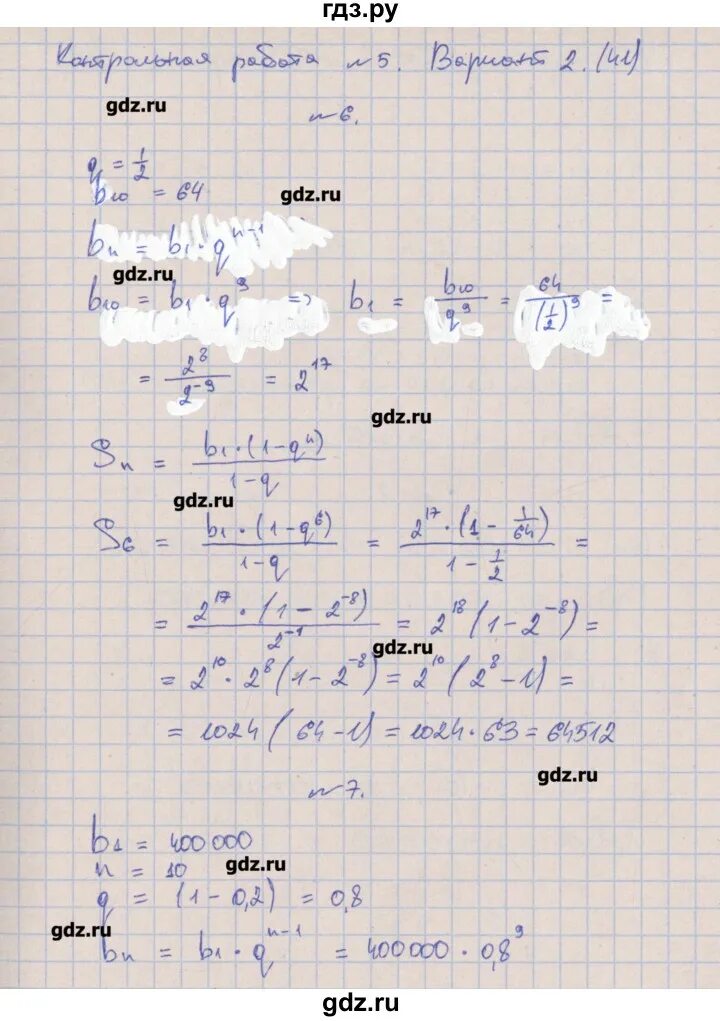 гдз.ру
Контрольная работа №5. Вариант 2. (41)
gdz.ru
№6.
q = 1/2
gdz.ru
b₁₀ = 64
bₙ = b₁ · qⁿ⁻¹
gdz.ru
b₁₀ = b₁ · q⁹ => b₁ = b₁₀/q⁹ = 64/(1/2)⁹ =
= 2⁸/2⁻⁹ = 2¹⁷
gdz.ru
Sₙ = b₁·(1-qⁿ)/1-q
gdz.ru
S₆ = b₁·(1-q⁶)/1-q = 2¹⁷·(1-1/64)/1-1/2 =
= 2¹⁷·(1-2⁻⁸)/2⁻¹ = 2¹⁸(1-2⁻⁸) =
gdz.ru
= 2¹⁰·2⁸(1-2⁻⁸) = 2¹⁰(2⁸-1) =
= 1024(64-1) = 1024·63 = 64512
gdz.ru
№7.
b₁ = 400 000
gdz.ru
n = 10
q = (1-0,2) = 0,8
gdz.ru
bₙ = b₁ · qⁿ⁻¹ = 400 000 · 0,8⁹
gdz.ru